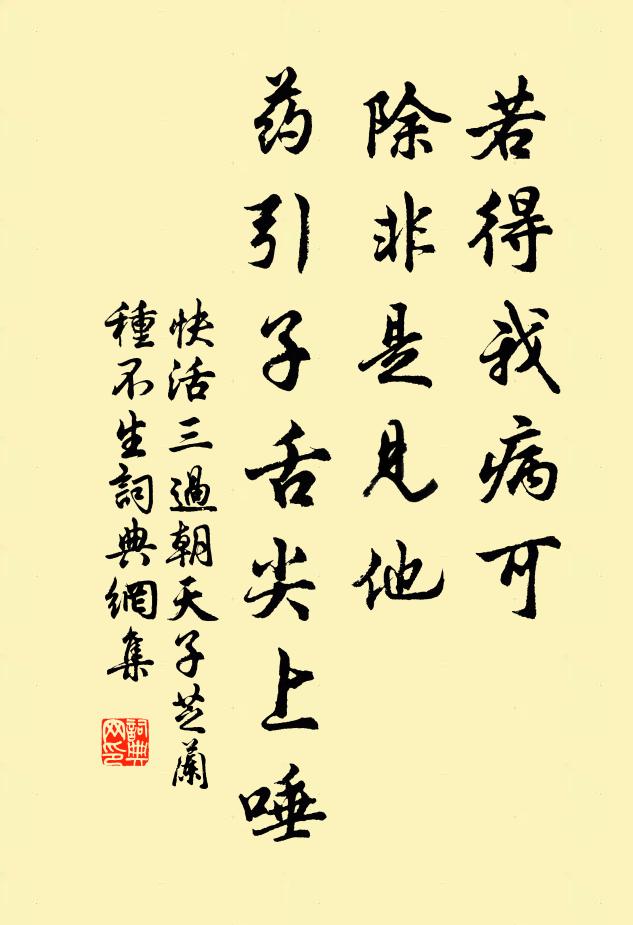 若得我病可
除非是见他
药引子舌尖上唾
快活三過朝天子芝蘭
種不生詞典網集
詞典
网印